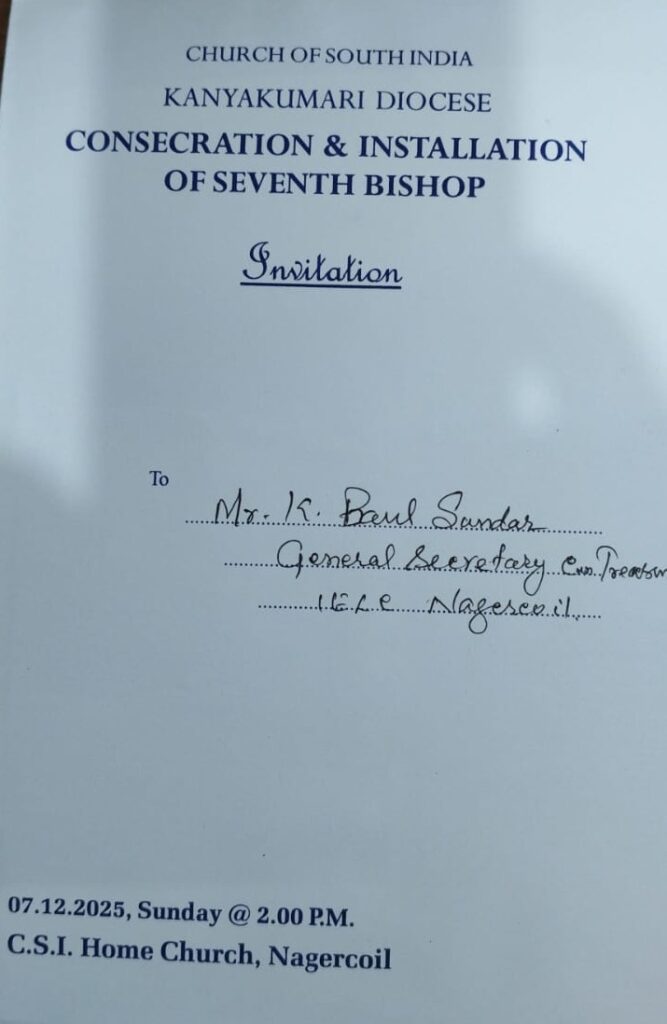 CHURCH OF SOUTH INDIA
KANYAKUMARI DIOCESE
CONSECRATION & INSTALLATION
OF SEVENTH BISHOP
Invitation
To
Mr. K. Paul Sundar
General Secretary Cum Treasur
IELC Nagercoil
07.12.2025, Sunday @ 2.00 P.M.
C.S.I. Home Church, Nagercoil